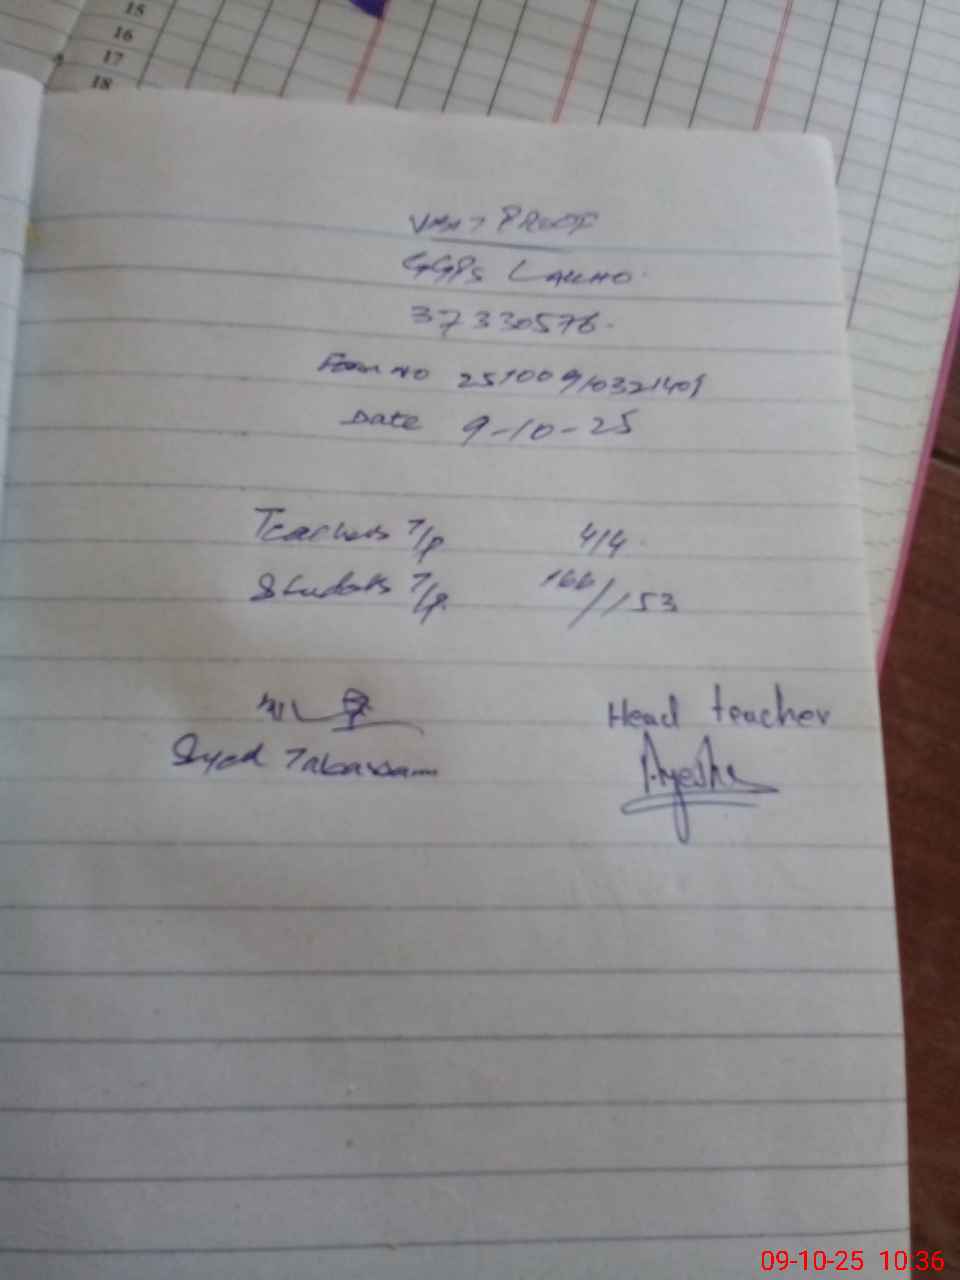 15
16
17
18
VISIT PROOF
GGPS LAKHO
37330576
Form No 25100910321401
Date 9-10-25
Teachers T/P 4/4
Students T/P 166/153
Syed Tabassam
Head teacher
Ayesha
09-10-25 10:36